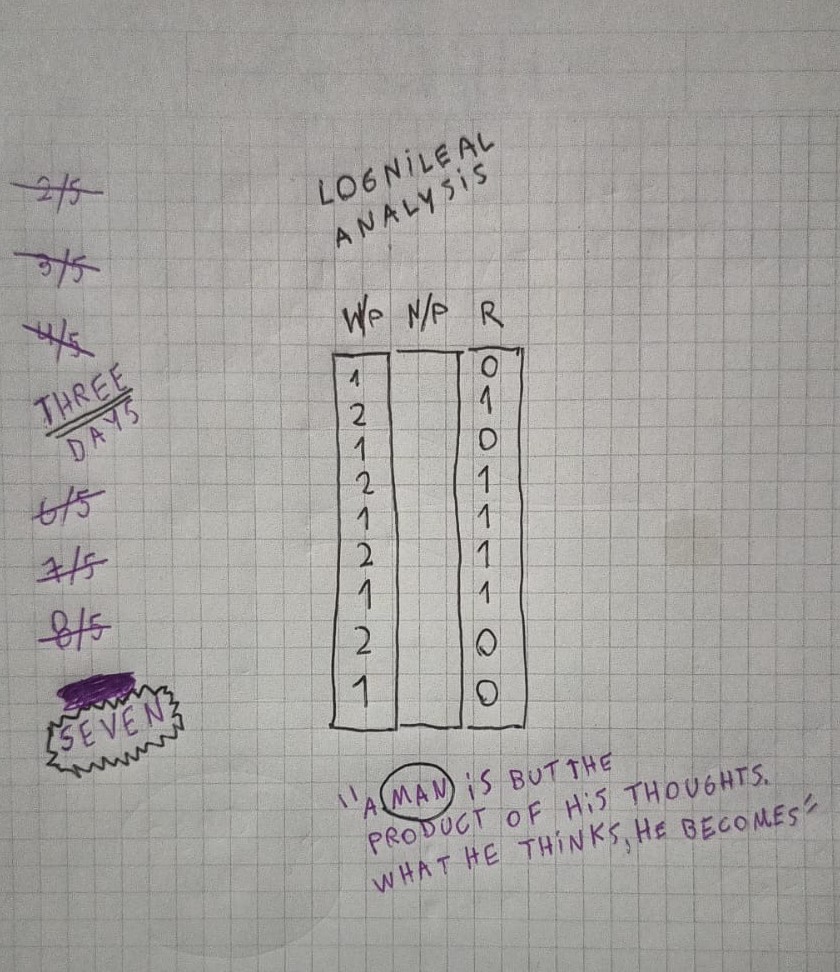 2/5
3/5
4/5
THREE
DAYS
6/5
7/5
8/5
SEVEN
LOGNiLEAL
ANALYSiS
W/P N/P R
1 0
2 1
1 0
2 1
1 1
2 1
1 1
2 0
1 0
"A MAN iS BUT THE
PRODUCT OF HiS THOUGHTS.
WHAT HE THiNKS, HE BECOMES"